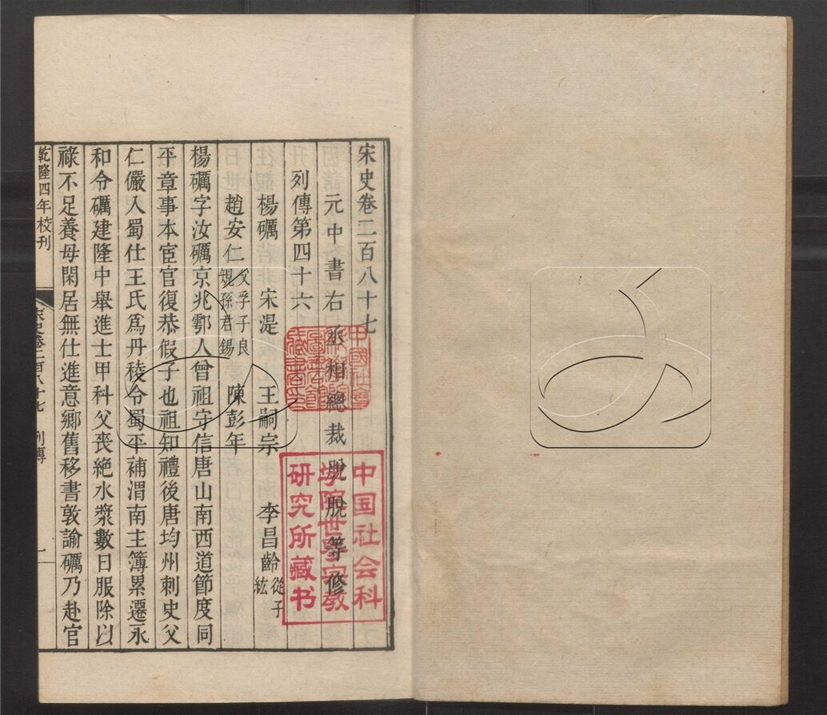 宋史卷二百八十七
元中書右丞相總裁脫脫等修
列傳第四十六
楊礪 宋湜 王嗣宗 李昌齡 從子紘
趙安仁 父孚 子良規 孫君錫 陳彭年
楊礪字汝礪京兆鄠人曾祖守信唐山南西道節度同
平章事本宦官復恭假子也祖知禮後唐均州刺史父
仁儼入蜀仕王氏爲丹稜令蜀平補渭南主簿累遷永
和令礪建隆中舉進士甲科父喪絶水漿數日服除以
祿不足養母閑居無仕進意鄉舊移書敦諭礪乃赴官
乾隆四年校刊
宋史卷二百八十七 列傳 一
中国社会科
学院世界宗教
研究所藏书